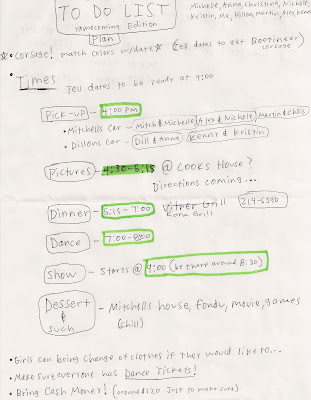 TO DO LIST
Homecoming Edition
Plan
Michelle, Anna, Christina, Nichole,
Kristin, Me, Dillon, Martin, Alex, Kenny
☆ Corsage! match colors w/date ☆ (tell dates to get Bootineer)
corsage
• Times
Tell dates to be ready at 4:00
Pick-up - 4:00 pm
• Mitchells Car - Mitch & Michelle, Alex & Nichole, Martin & Chris
• Dillons Car - Dill & Anna, Kenny & Kristin
Pictures - 4:30-5:15 @ Cooks House?
Directions coming...
Dinner - 5:15 - 7:00 Vitner Grill 214-5590
Kona Grill
Dance - 7:00-8:00
Show - Starts @ 9:00 (be there around 8:30)
Dessert & such - Mitchells house, fondu, movie, games
(chill)
• Girls can bring change of clothes if they would like to...
• Make sure everyone has Dance Tickets!
• Bring Cash Money! (around $120 Just to make sure)